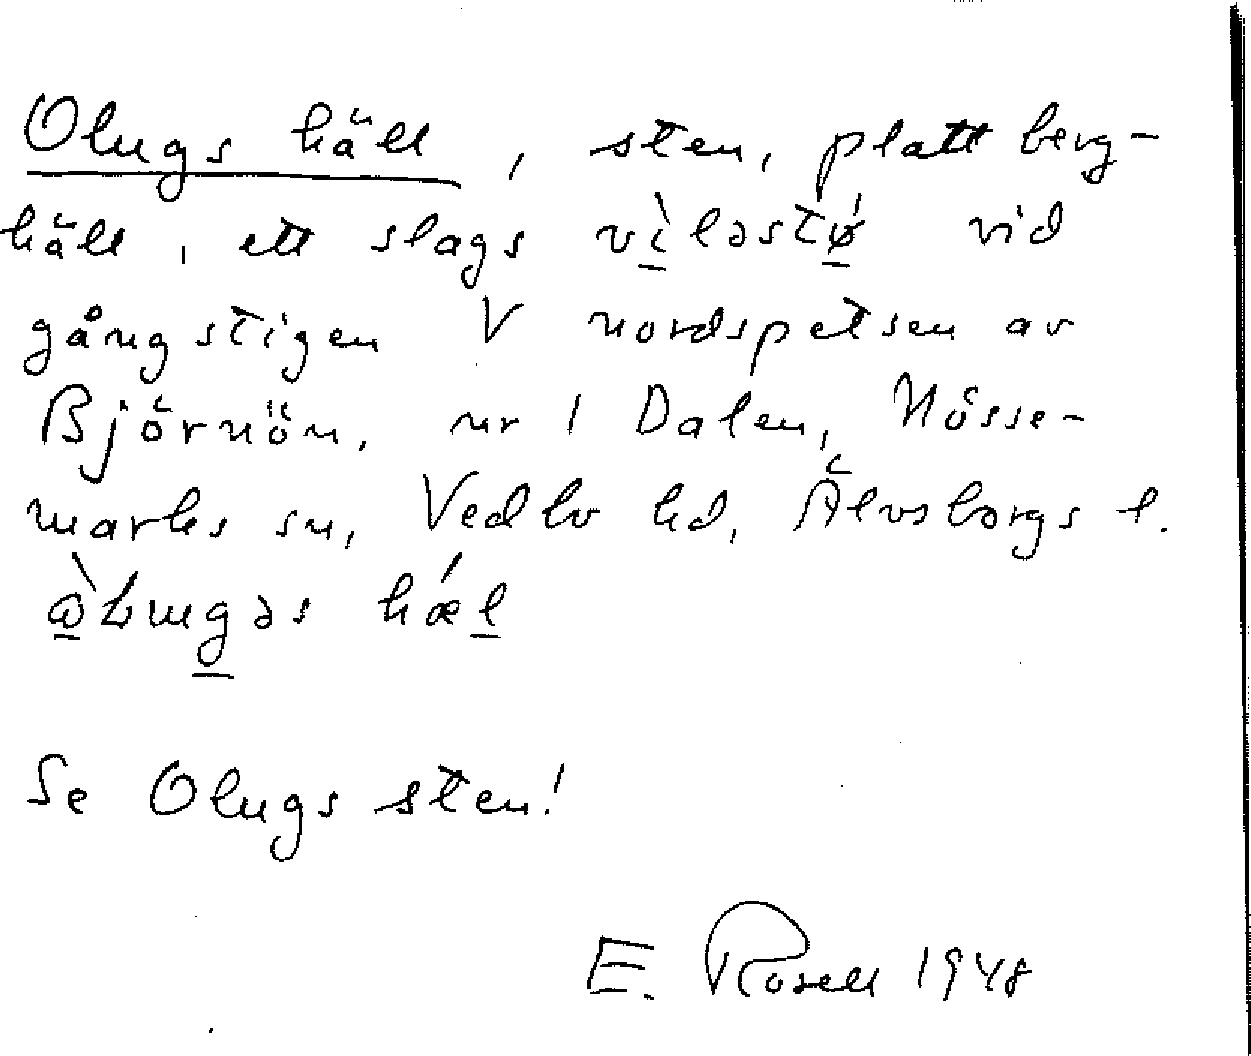 Olugs häll, sten, platt berg-
häll, ett slags vid
gångstigen V nordspetsen av
Björnön, nr 1 Dalen, Nösse-
marks sn, Vedbo hd, Älvsborgs l.
Se Olugs sten!
E. Rosell 1948